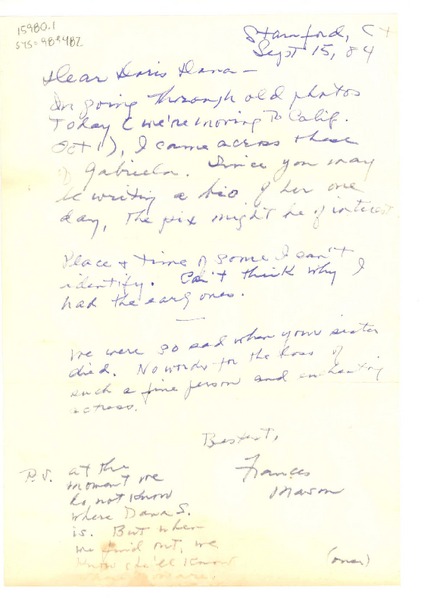 15980.1
SYS=989482
Stamford, Ct
Sept 15, 84
Dear Doris Dana—
In going through old photos
today (we're moving to Calif.
Oct 1), I came across these
of Gabriela. Since you may
be writing a bio of her one
day, the pix might be of interest
Place & time of some I can't
identify. Can't think why I
had the early ones.
We were so sad when your sister
died. No words for the loss of
such a fine person and
actress.
Bestest,
Frances
Mason
P.S. at the
moment we
do not know
where Dana S.
is. But when
we find out, we
know she'll know
(over)